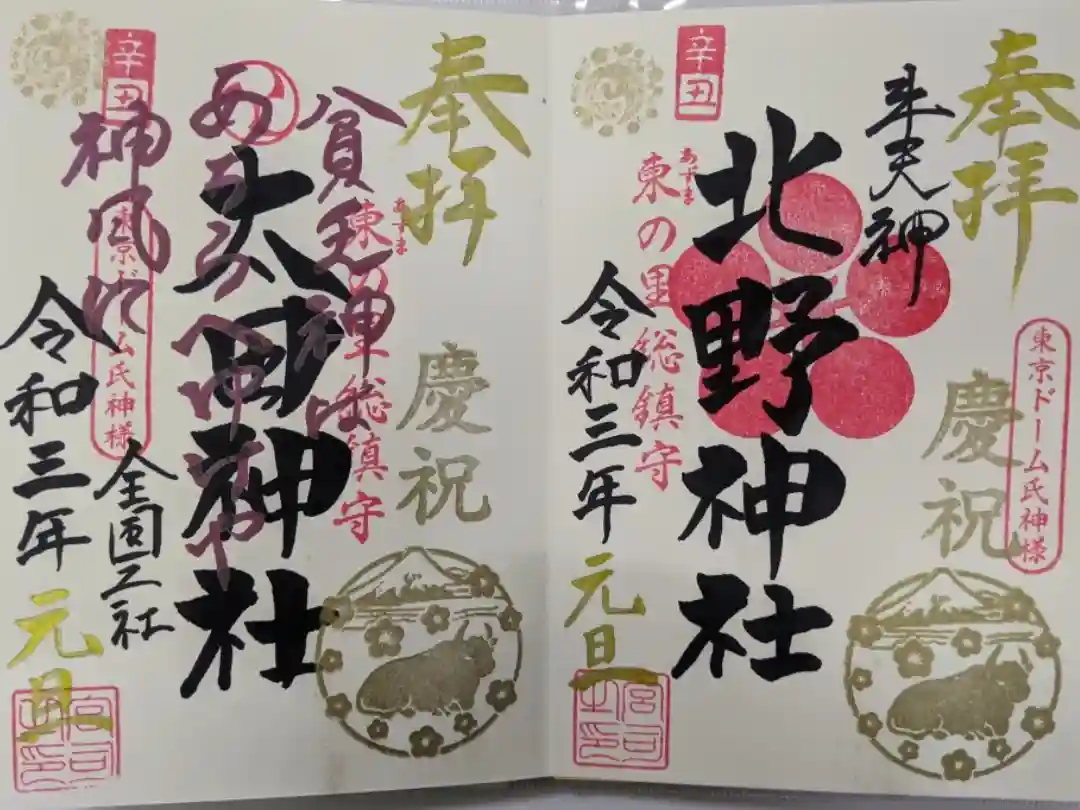 奉拝
慶祝
東京ドーム氏神様
牛天神
北野神社
辛丑
東の里 総鎮守
あずま
令和三年
元旦
奉拝
慶祝
貧乏神
東の里 総鎮守
あずま
太田神社
辛丑
神風に
東京ドーム氏神様
全国一社
令和三年
元旦